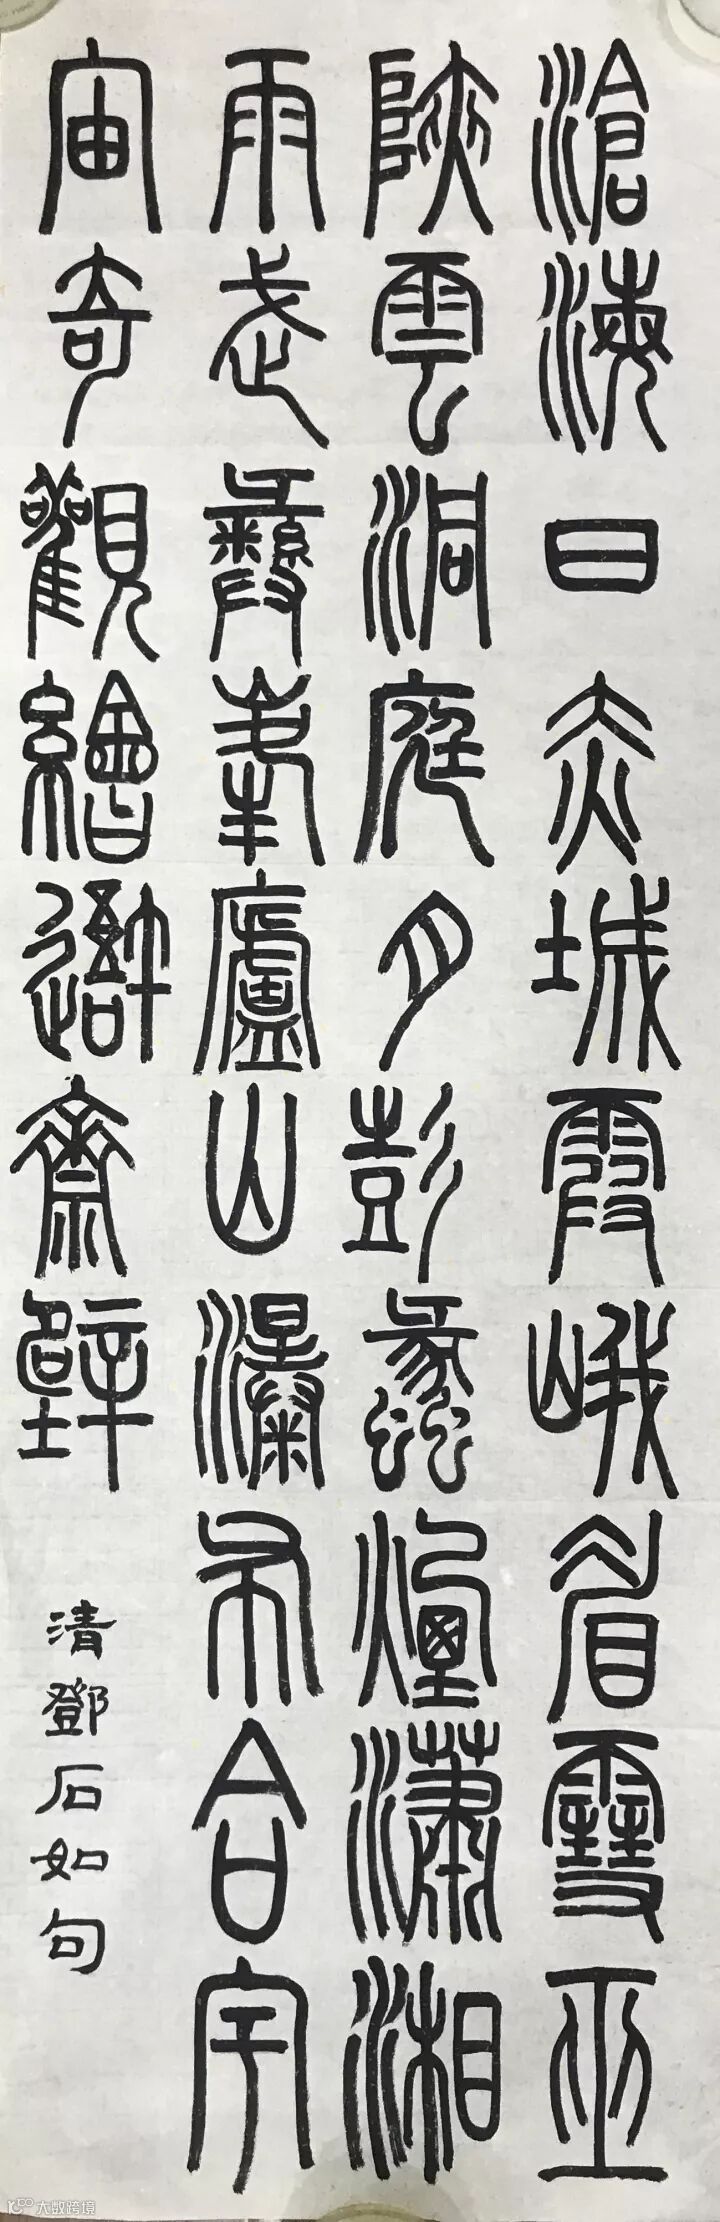 滄海日赤城霞峨眉雪巫
陜雲洞庭月彭蠡煙瀟湘
雨武彝峯廬山瀑布合宇
宙奇觀繪吾齋壁
清鄧石如句
大数跨境